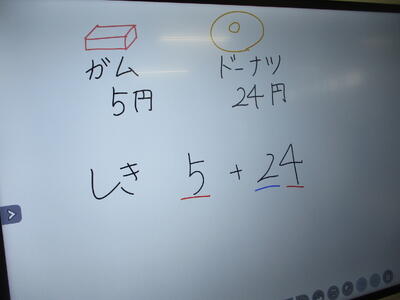 ガム ドーナツ
5円 24円
しき 5+24